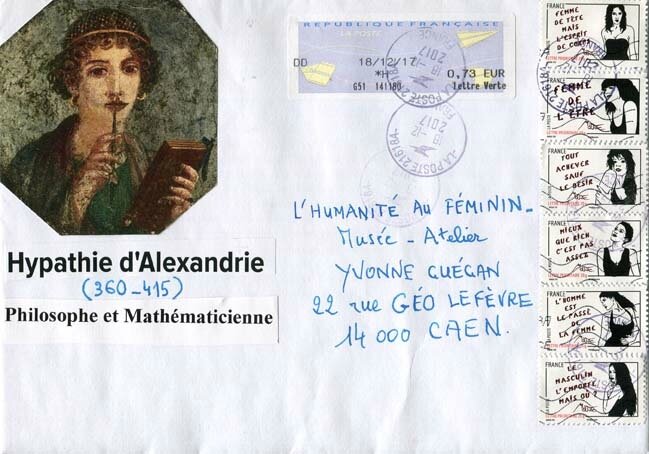 Hypathie d'Alexandrie
(360-415)
Philosophe et Mathématicienne
REPUBLIQUE FRANÇAISE
LA POSTE
DD 18/12/17
*H 0,73 EUR
G51 141180 Lettre Verte
LA POSTE 21618A
18-12-
2017
FRANCE
L'HUMANITÉ AU FÉMININ_
Musée - Atelier
YVONNE GUÉGAN
22 rue GÉO LEFÈVRE
14 000 CAEN.
FEMME
DE TÊTE
MAIS
L'ESPRIT
DE CORPS
FRANCE
FEMME
DE
L'ÊTRE
FRANCE
TOUT
ACHEVER
SAUF
LE DÉSIR
LETTRE PRIORITAIRE 20g
FRANCE
MIEUX
QUE RICH
C'EST PAS
ASSEZ
LETTRE PRIORITAIRE 20g
FRANCE
L'HOMME
EST
LE PASSÉ
DE
LA FEMME
LETTRE PRIORITAIRE 20g
FRANCE
LE
MASCULIN
L'EMPORTE
MAIS OÙ ?
LETTRE PRIORITAIRE 20g